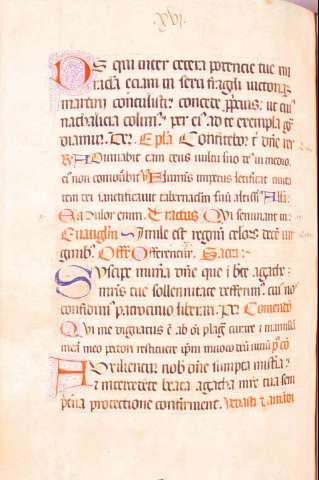 .xvi.
DS qui inter cetera potencie tue mi
racula eciam in sexu fragili victoriam
martirii contulisti: concede propicius: ut cuius
natalicia colimus per eius ad te exempla gra
diamur. Per. Epla Confitebor t dne rex
Adiuvabit eam deus vultu suo deus in medio
eius non comovebitur V Fluminis impetus letificat civita
tem dei sanctificavit tabernaclm suum altissim Alla
Adducentur. Tractus Qui seminant in
Evanglm Simile est regnum celorum decem vir
ginibus. Offr Offerentur. Sacra:
Suscipe munera dne que in bte agathe
martiris tue sollennitate deferimus: cuius nos
confidimus patrocinio liberari. Per Comendo
Qui me dignatus est ab omni plaga curare et mamillam
meam meo pectori restituere ipsum invoco deum vivum
Auxilientur nob dne sumpta misteria:
et intercedente beata agatha martire tua sem
piterna protectione confirment.